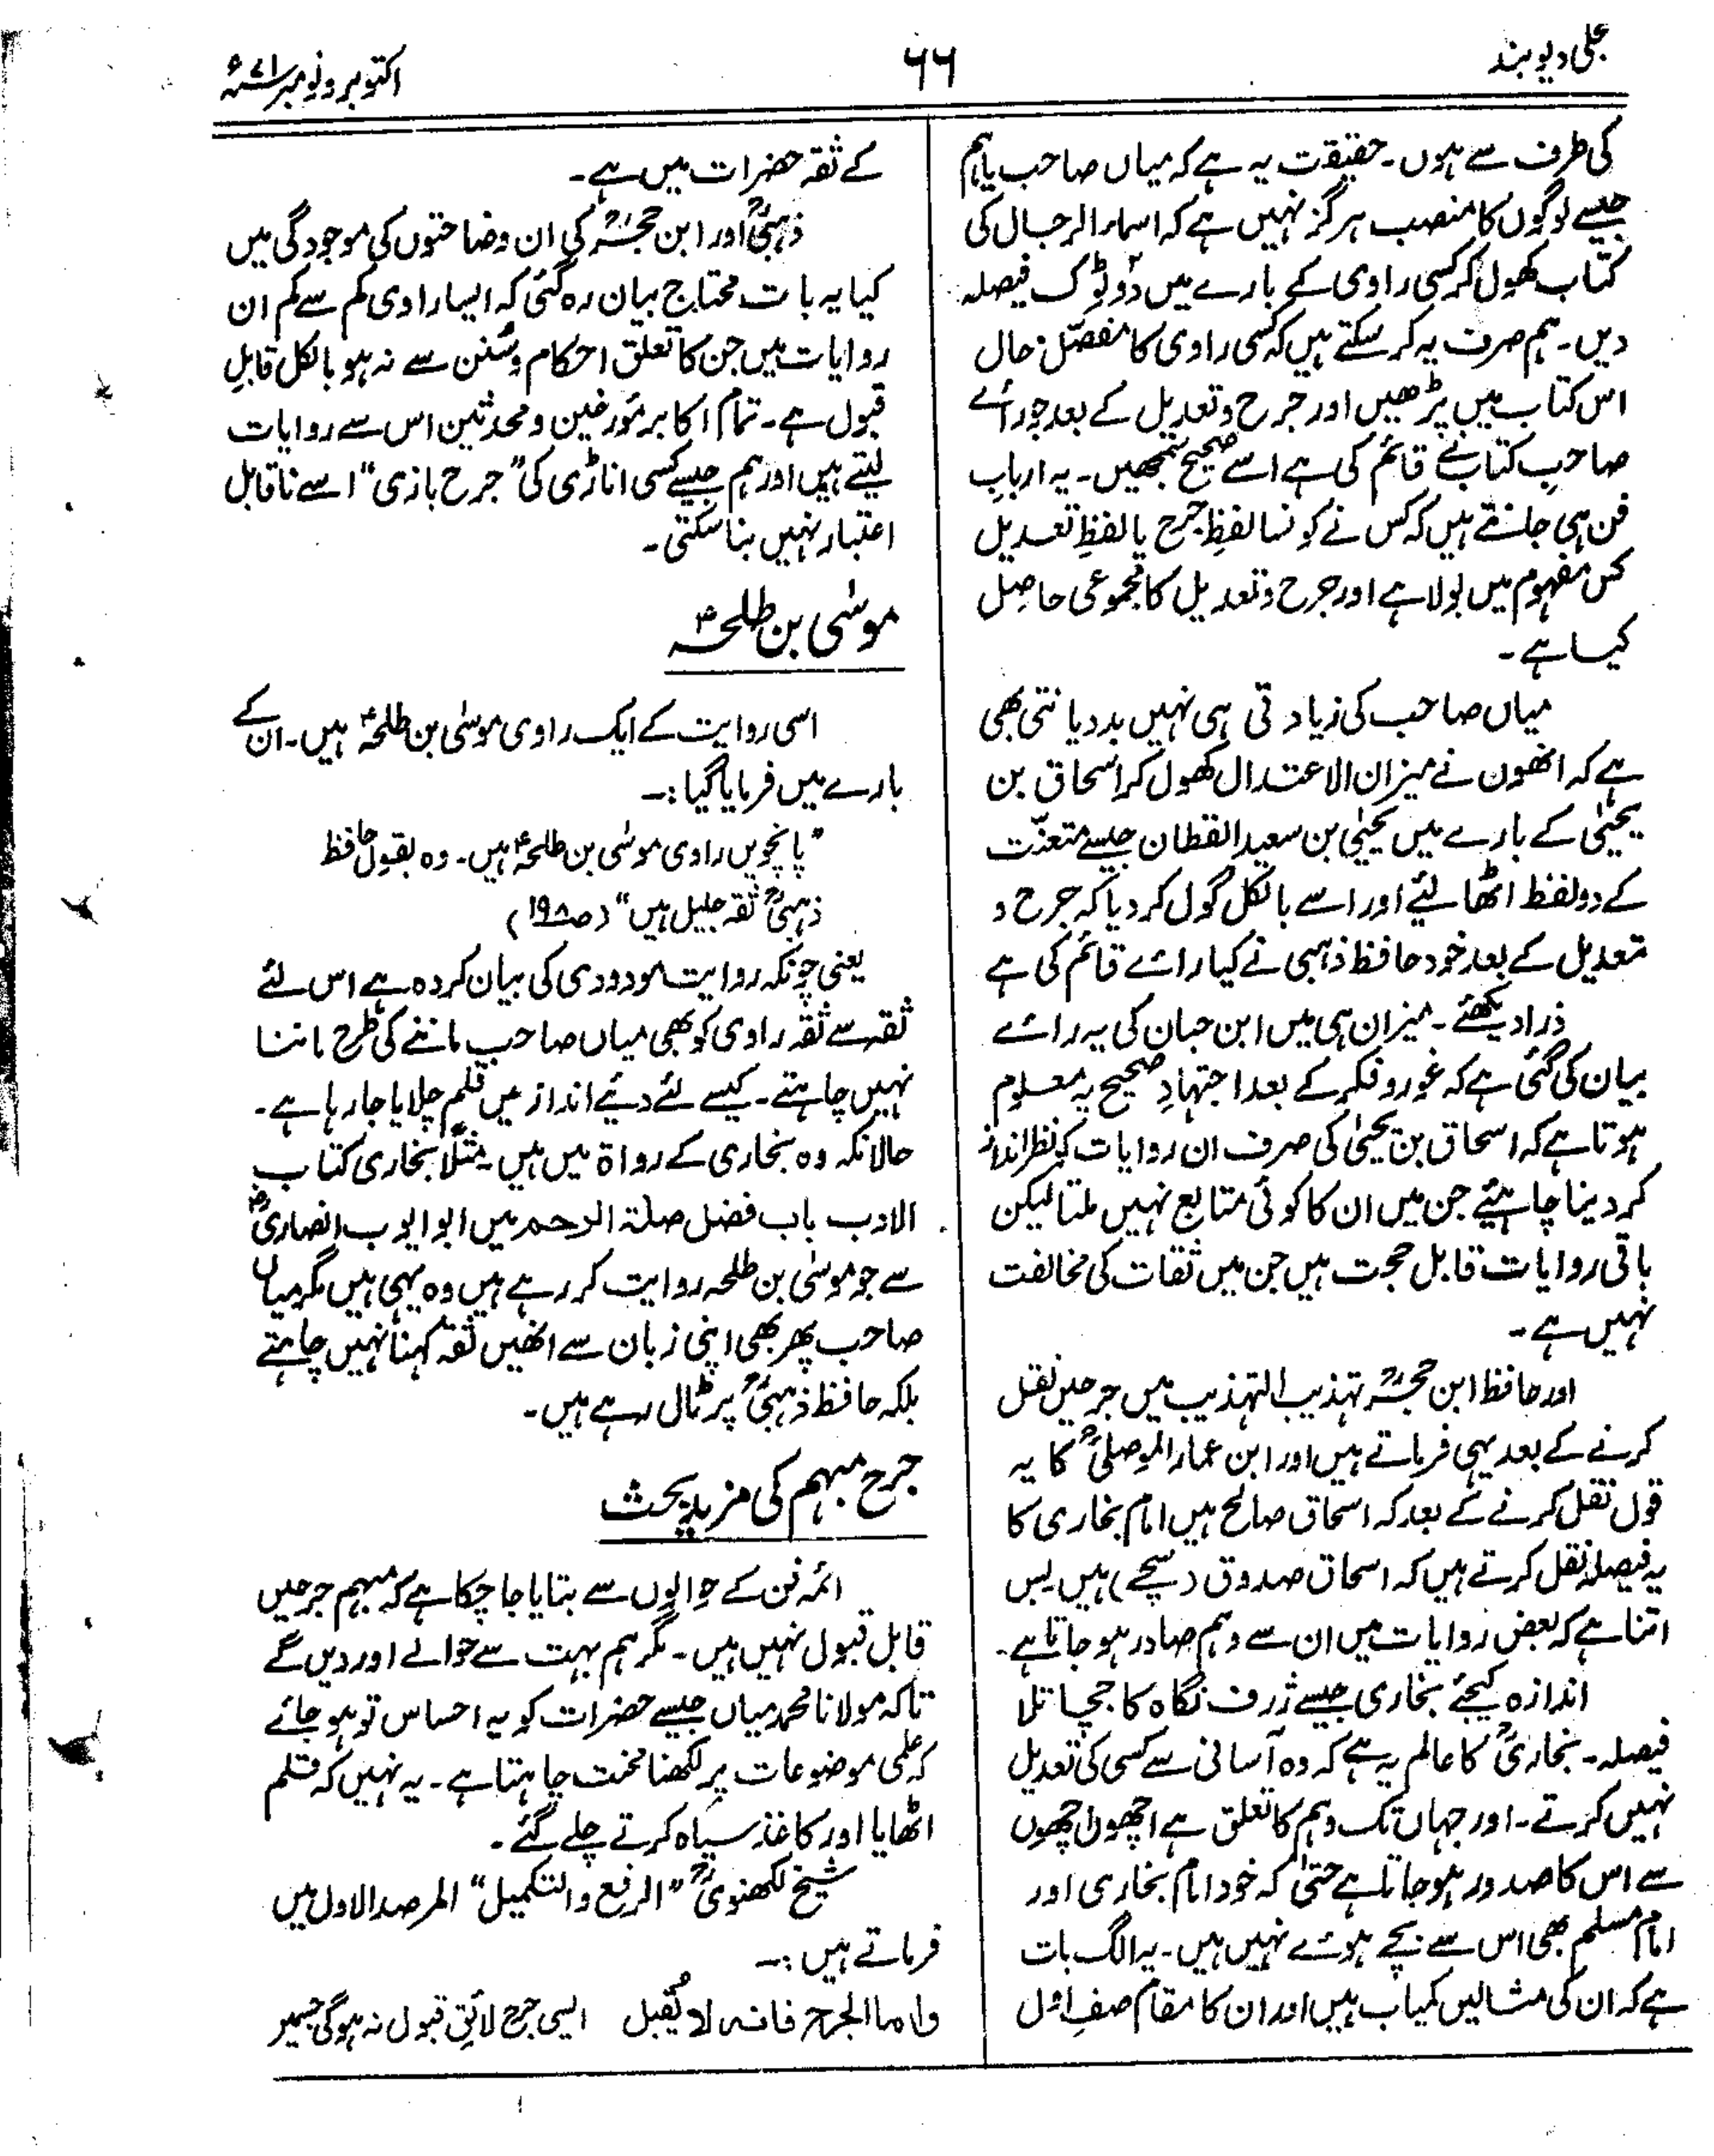 تجلی دیوبند
۶۶
اکتوبر و نومبر ۷۱ء
کی طرف سے ہوں۔ حقیقت یہ ہے کہ میاں صاحب یا ہم
جیسے لوگوں کا منصب ہرگز نہیں ہے کہ اسماء الرجال کی
کتاب کھول کر کسی راوی کے بارے میں دو ٹوک فیصلہ
دیں۔ ہم صرف یہ کر سکتے ہیں کہ کسی راوی کا مفصّل حال
اس کتاب میں پڑھیں اور جرح و تعدیل کے بعد جو رائے
صاحبِ کتاب نے قائم کی ہے اسے صحیح سمجھیں۔ یہ اربابِ
فن ہی جانتے ہیں کہ کس نے کونسا لفظِ جرح یا لفظِ تعدیل
کس مفہوم میں بولا ہے اور جرح و تعدیل کا مجموعی حاصل
کیا ہے۔
میاں صاحب کی زیادتی ہی نہیں بددیانتی بھی
ہے کہ انھوں نے میزان الاعتدال کھول کر اسحاق بن
یحییٰ کے بارے میں یحییٰ بن سعید القطان جیسے متعنّت
کے دو لفظ اٹھا لئے اور اسے بالکل گول کر دیا کہ جرح و
تعدیل کے بعد خود حافظ ذہبی نے کیا رائے قائم کی ہے
ذرا دیکھئے۔ میزان ہی میں ابن حبان کی یہ رائے
بیان کی گئی ہے کہ غور و فکر کے بعد اجتہادِ صحیح یہ معلوم
ہوتا ہے کہ اسحاق بن یحییٰ کی صرف ان روایات کو نظر انداز
کر دینا چاہئیے جن میں ان کا کوئی متابع نہیں ملتا لیکن
باقی روایات قابل حجت ہیں جن میں ثقات کی مخالفت
نہیں ہے۔
اور حافظ ابن حجرؒ تہذیب التہذیب میں جرحیں نقل
کرنے کے بعد یہی فرماتے ہیں اور ابن عمار الموصلیؒ کا یہ
قول نقل کرنے کے بعد کہ اسحاق صالح ہیں امام بخاری کا
یہ فیصلہ نقل کرتے ہیں کہ اسحاق صدوق (سچے) ہیں بس
اتنا ہے کہ بعض روایات میں ان سے وہم صادر ہو جاتا ہے۔
اندازہ کیجئے بخاری جیسے ژرف نگاہ کا جچا تلا
فیصلہ۔ بخاریؒ کا عالم یہ ہے کہ وہ آسانی سے کسی کی تعدیل
نہیں کرتے۔ اور جہاں تک وہم کا تعلق ہے اچھوں اچھوں
سے اس کا صدور ہو جاتا ہے حتیٰ کہ خود امام بخاری اور
امام مسلم بھی اس سے بچے ہوئے نہیں ہیں۔ یہ الگ بات
ہے کہ ان کی مثالیں کمیاب ہیں اور ان کا مقام صفِ اول
کے ثقہ حضرات میں ہے۔
ذہبیؒ اور ابن حجرؒ کی ان وضاحتوں کی موجودگی میں
کیا یہ بات محتاج بیان رہ گئی کہ ایسا راوی کم سے کم ان
روایات میں جن کا تعلق احکام و سُنن سے نہ ہو بالکل قابلِ
قبول ہے۔ تمام اکابر مؤرخین و محدثین اس سے روایات
لیتے ہیں اور ہم جیسے کسی اناڑی کی "جرح بازی" اسے ناقابل
اعتبار نہیں بنا سکتی۔
موسٰی بن طلحہؒ
اسی روایت کے ایک راوی موسٰی بن طلحہؒ ہیں۔ ان کے
بارے میں فرمایا گیا:۔
"پانچویں راوی موسٰی بن طلحہؒ ہیں۔ وہ بقول حافظ
ذہبیؒ ثقہ جلیل ہیں" (ص۱۹۸)
یعنی چونکہ روایت مودودی کی بیان کردہ ہے اس لئے
ثقہ سے ثقہ راوی کو بھی میاں صاحب ماننے کی طرح ماننا
نہیں چاہتے۔ کیسے لئے دئیے انداز میں قلم چلایا جا رہا ہے۔
حالانکہ وہ بخاری کے رواۃ میں ہیں۔ مثلًا بخاری کتاب
الادب باب فضل صلۃ الرحم میں ابو ایوب انصاریؓ
سے جو موسٰی بن طلحہ روایت کر رہے ہیں وہ یہی ہیں مگر میاں
صاحب پھر بھی اپنی زبان سے انھیں ثقہ کہنا نہیں چاہتے
بلکہ حافظ ذہبیؒ پر ٹال رہے ہیں۔
جرح مبہم کی مزید بحث
ائمہ فن کے حوالوں سے بتایا جا چکا ہے کہ مبہم جرحیں
قابل قبول نہیں ہیں۔ مگر ہم بہت سے حوالے اور دیں گے
تاکہ مولانا محمد میاں جیسے حضرات کو یہ احساس تو ہو جائے
کہ علمی موضوعات پر لکھنا محنت چاہتا ہے۔ یہ نہیں کہ قلم
اٹھایا اور کاغذ سیاہ کرتے چلے گئے۔
شیخ لکھنویؒ "الرفع والتکمیل" المرصد الاول میں
فرماتے ہیں:۔
واما الجرح فانہ لا یُقبل ایسی جرح لائقِ قبول نہ ہوگی جسمیں